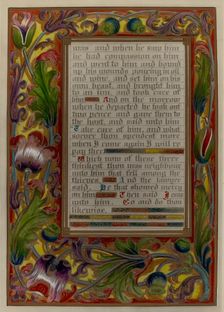 was and when he saw him
he had compassion on him
and went to him and bound
up his wounds pouring in oil
and wine, and set him on his
own beast, and brought him
to an inn, and took care
of him And on the morrow
when he departed he took out
two pence and gave them to
the host, and said unto him
Take care of him, and what
soever thou spendest more
when I come again I will re
pay thee
Which now of these three
thinkest thou was neighbour
unto him that fell among the
thieves And the lawyer
said. He that showed mercy
on him Then said Jesus
unto him. Go and do thou
likewise.